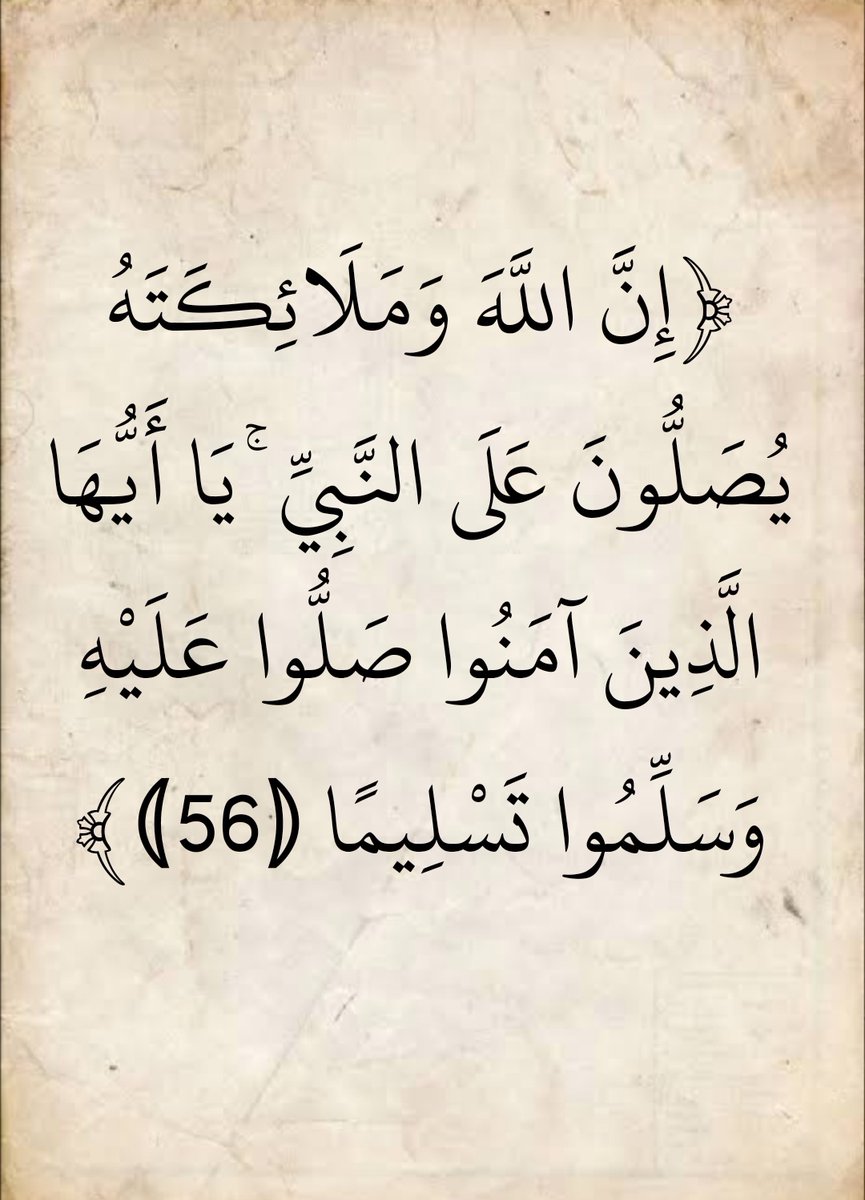 ﴿إِنَّ اللَّهَ وَمَلَائِكَتَهُ
يُصَلُّونَ عَلَى النَّبِيِّ ۚ يَا أَيُّهَا
الَّذِينَ آمَنُوا صَلُّوا عَلَيْهِ
وَسَلِّمُوا تَسْلِيمًا ⦅56⦆﴾